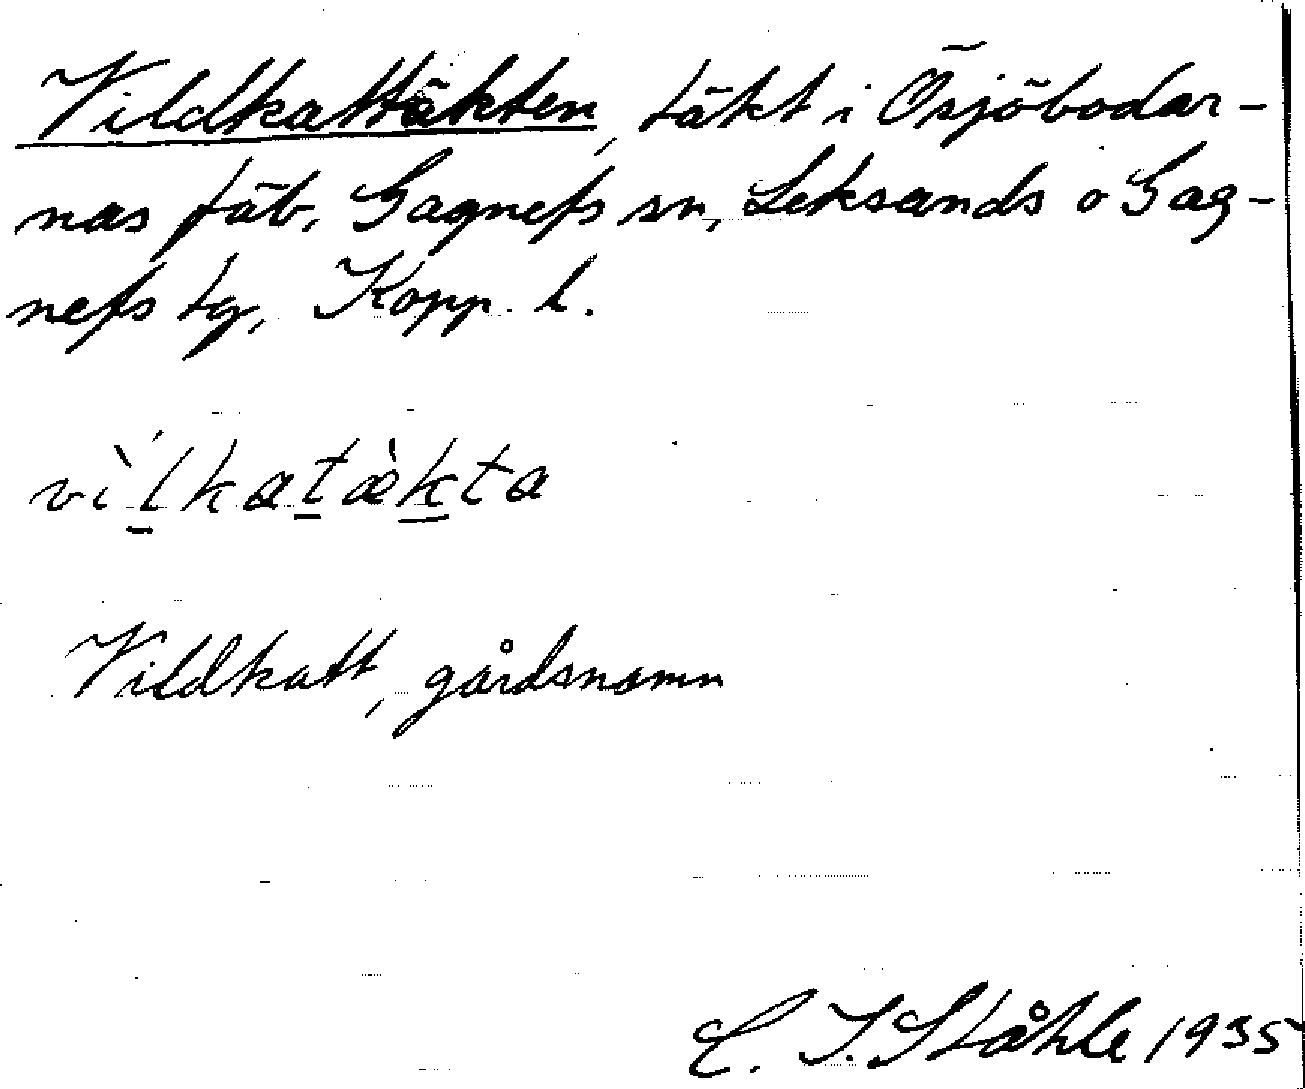 Vildkattäkten, täkt i Ösjöbodar-
nas fäb., Gagnefs sn, Leksands o Gag-
nefs tg, Kopp. l.
vìlkatæ̀kta
Vildkatt, gårdsnamn
C. I. Ståhle 1935